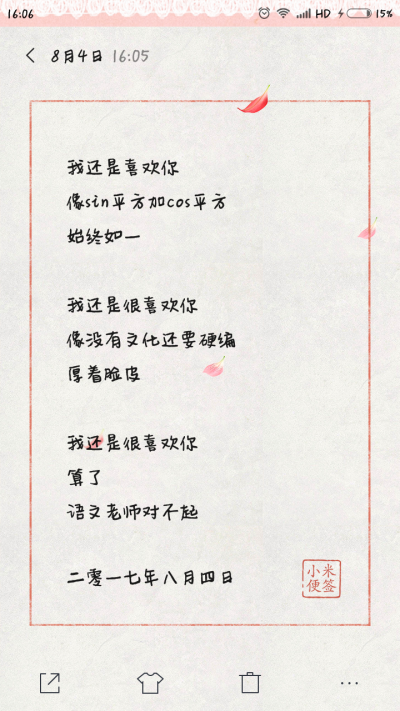 16:06 HD 15%
8月4日 16:05
我还是喜欢你
像sin平方加cos平方
始终如一
我还是很喜欢你
像没有文化还要硬编
厚着脸皮
我还是很喜欢你
算了
语文老师对不起
二零一七年八月四日
小米
便签